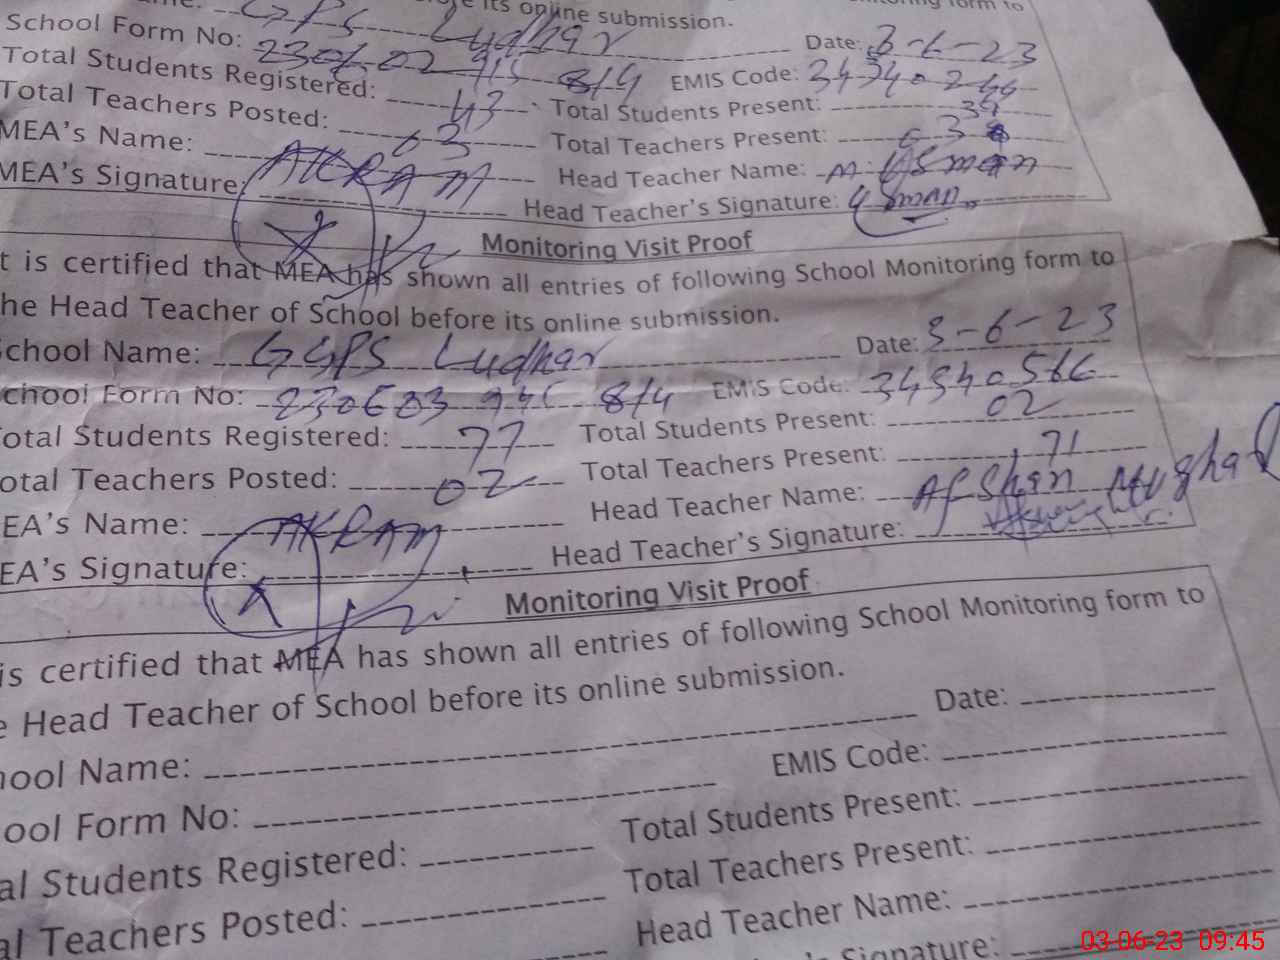 its online submission.
School Form No: Date: 3-6-23
Total Students Registered: 43 EMIS Code:
Total Teachers Posted: 03 Total Students Present: 39
MEA's Name: AKRAM Total Teachers Present: 03
MEA's Signature Head Teacher Name: M. Usman
Head Teacher's Signature: Usman
Monitoring Visit Proof
t is certified that MEA has shown all entries of following School Monitoring form to
he Head Teacher of School before its online submission.
School Name: GGPS Ludhar Date: 3-6-23
chool Form No: 814 EMIS Code: 34540566
otal Students Registered: 77 Total Students Present: 02
otal Teachers Posted: 02 Total Teachers Present: 71
EA's Name: AKRAM Head Teacher Name: Afshan Mughal
EA's Signature: Head Teacher's Signature:
Monitoring Visit Proof
is certified that MEA has shown all entries of following School Monitoring form to
e Head Teacher of School before its online submission.
hool Name: Date:
ool Form No: EMIS Code:
al Students Registered: Total Students Present:
al Teachers Posted: Total Teachers Present:
Head Teacher Name:
Signature:
03-06-23 09:45